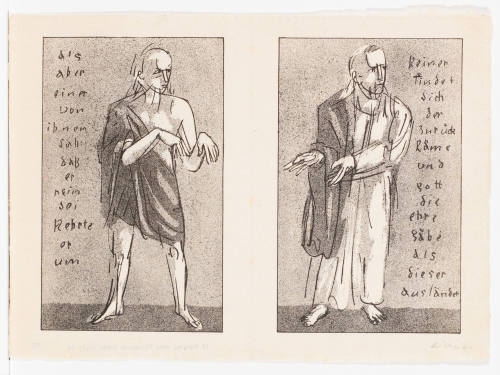 als
aber
einer
von
ihnen
sah
daß
er
rein
sei
kehrte
er
um
keiner
findet
sich
der
zurück
käme
und
gott
die
ehre
gäbe
als
dieser
ausländer